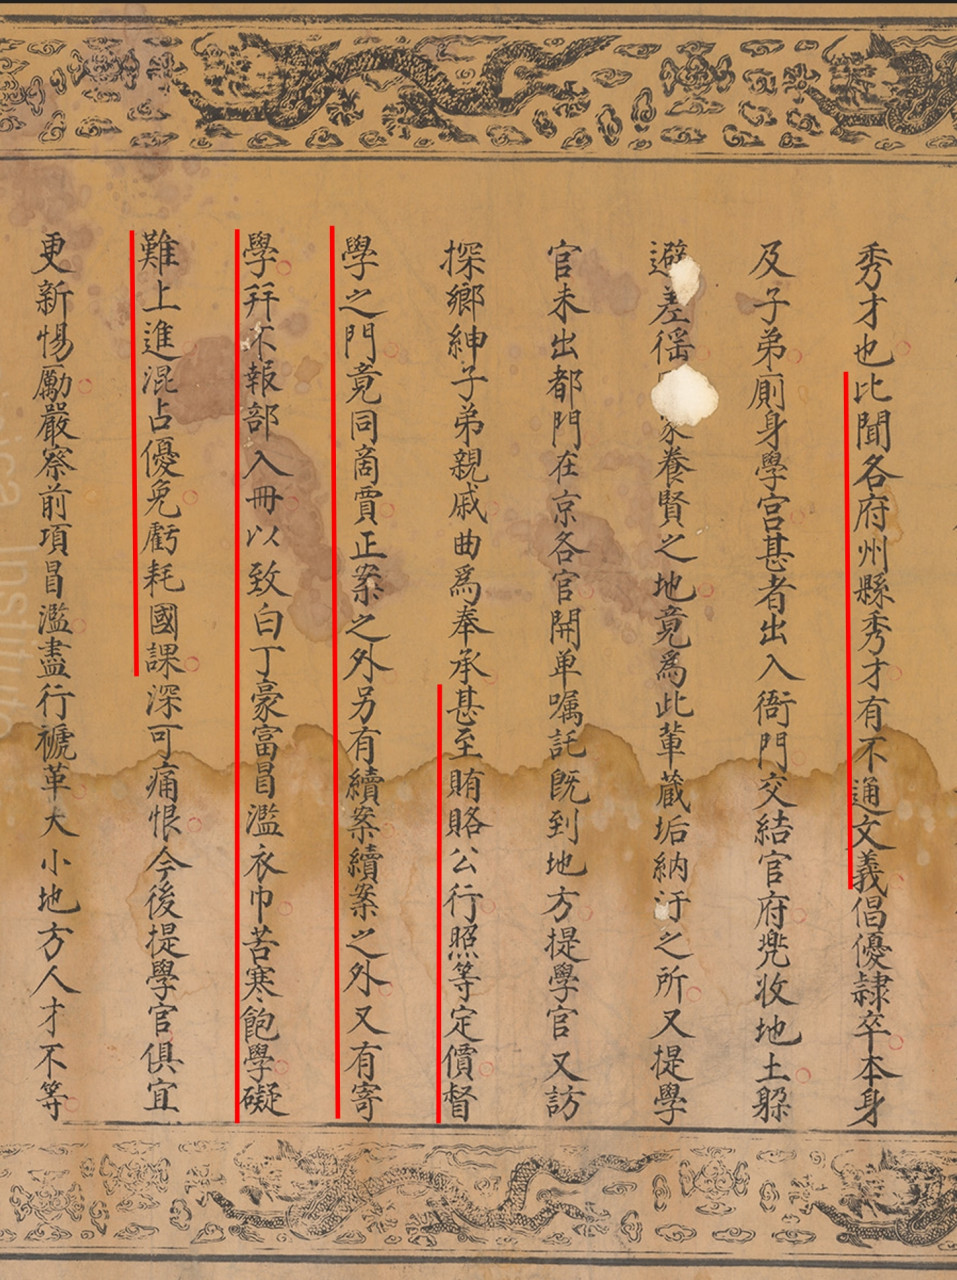 秀才也比聞各府州縣秀才有不通文義倡優隷卒本身
及子弟厠身學宮甚者出入衙門交結官府兠收地土躱
避差徭家養賢之地竟爲此輩蔵垢納汙之所又提學
官未出都門在京各官開单嘱託旣到地方提學官又訪
探鄉紳子弟親戚曲爲奉承甚至賄賂公行照等定價督
學之門竟同啇賈正案之外另有續案續案之外又有寄
學拜不報部入冊以致白丁豪富冒濫衣巾苦寒飽學礙
難上進混占優免虧耗國課深可痛恨今後提學官俱宜
更新惕勵嚴察前項冒濫盡行褫革大小地方人才不等